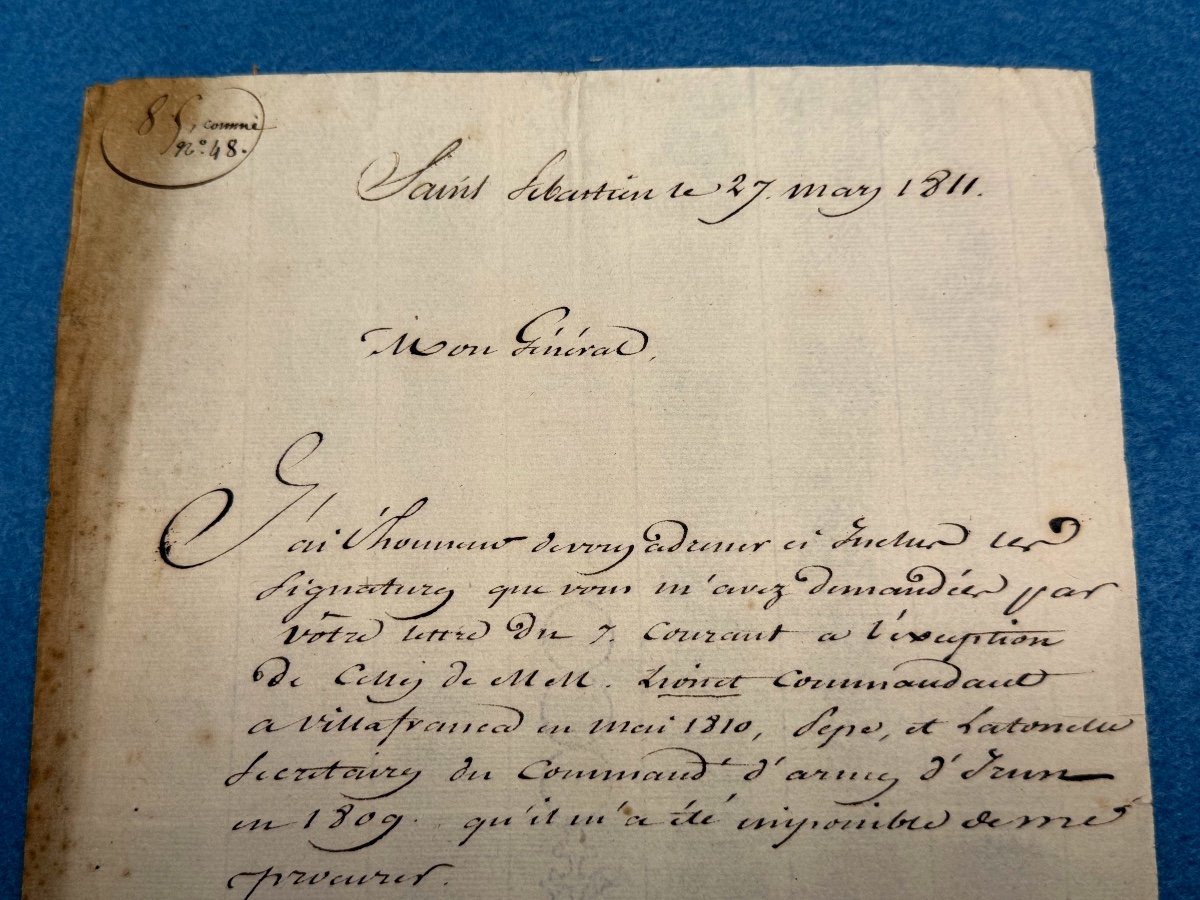 85, comme
n.° 48.
Saint Sebastien le 27. mars 1811.
Mon Général,
J'ai l'honneur de vous adresser ci Inclus les
signatures que vous m'avez demandées par
vôtre lettre du 7. courant a l'exception
de celles de MM. commandant
a Villafranca en mai 1810, Pepe, et
secretaires du Command.t d'armes d'Irun
en 1809. qu'il m'a été impossible de me
procurer.